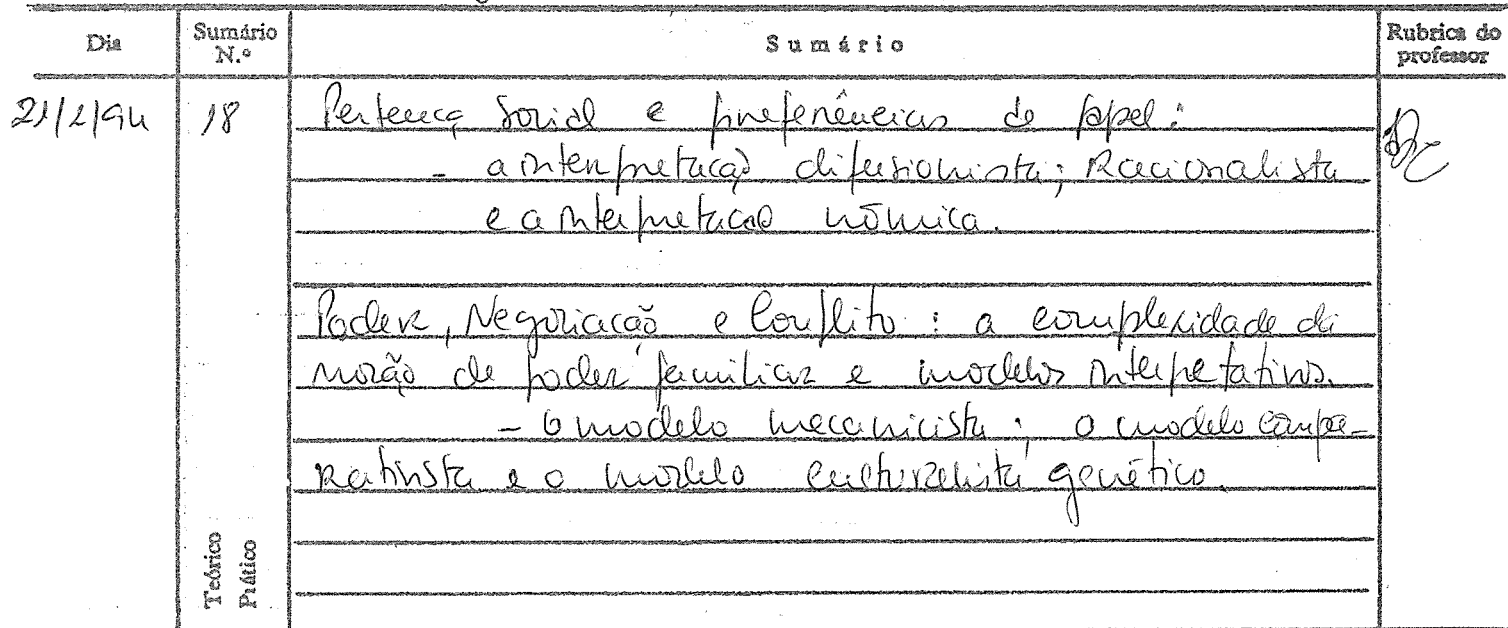 Dia Sumário N.º Sumário Rubrica do professor
18 Pertença Social e preferências de papel:
- a interpretação difusionista; Racionalista
e a interpretação nómica.
Poder, Negociação e Conflito : a complexidade da
noção de poder familiar e modelos interpretativos.
- O modelo mecanicista; o modelo compa-
ratista e o modelo culturalista genético.
Teórico
Prático